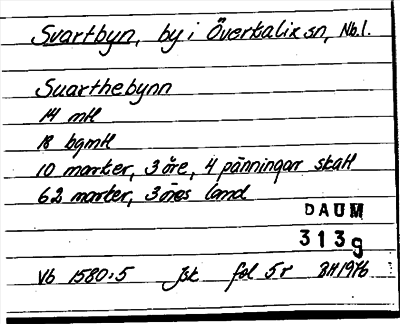 Svartbyn, by i Överkalix sn, Nb.l.
Suarthebynn
14 mtl
18 bgmtl
10 marker, 3 öre, 4 pänningar skatt
62 marker, 3 öres land
DAUM
3139
Vb 1580:5 fol 5r